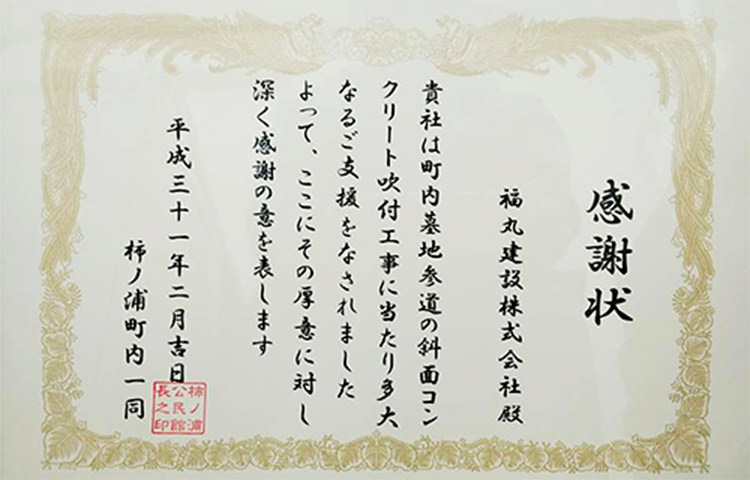 感謝状
福丸建設株式会社殿
貴社は町内墓地参道の斜面コン
クリート吹付工事に当たり多大
なるご支援をなされました
よって、ここにその厚意に対し
深く感謝の意を表します
平成三十一年二月吉日
柿ノ浦町内一同
柿ノ浦
公民館
長之印